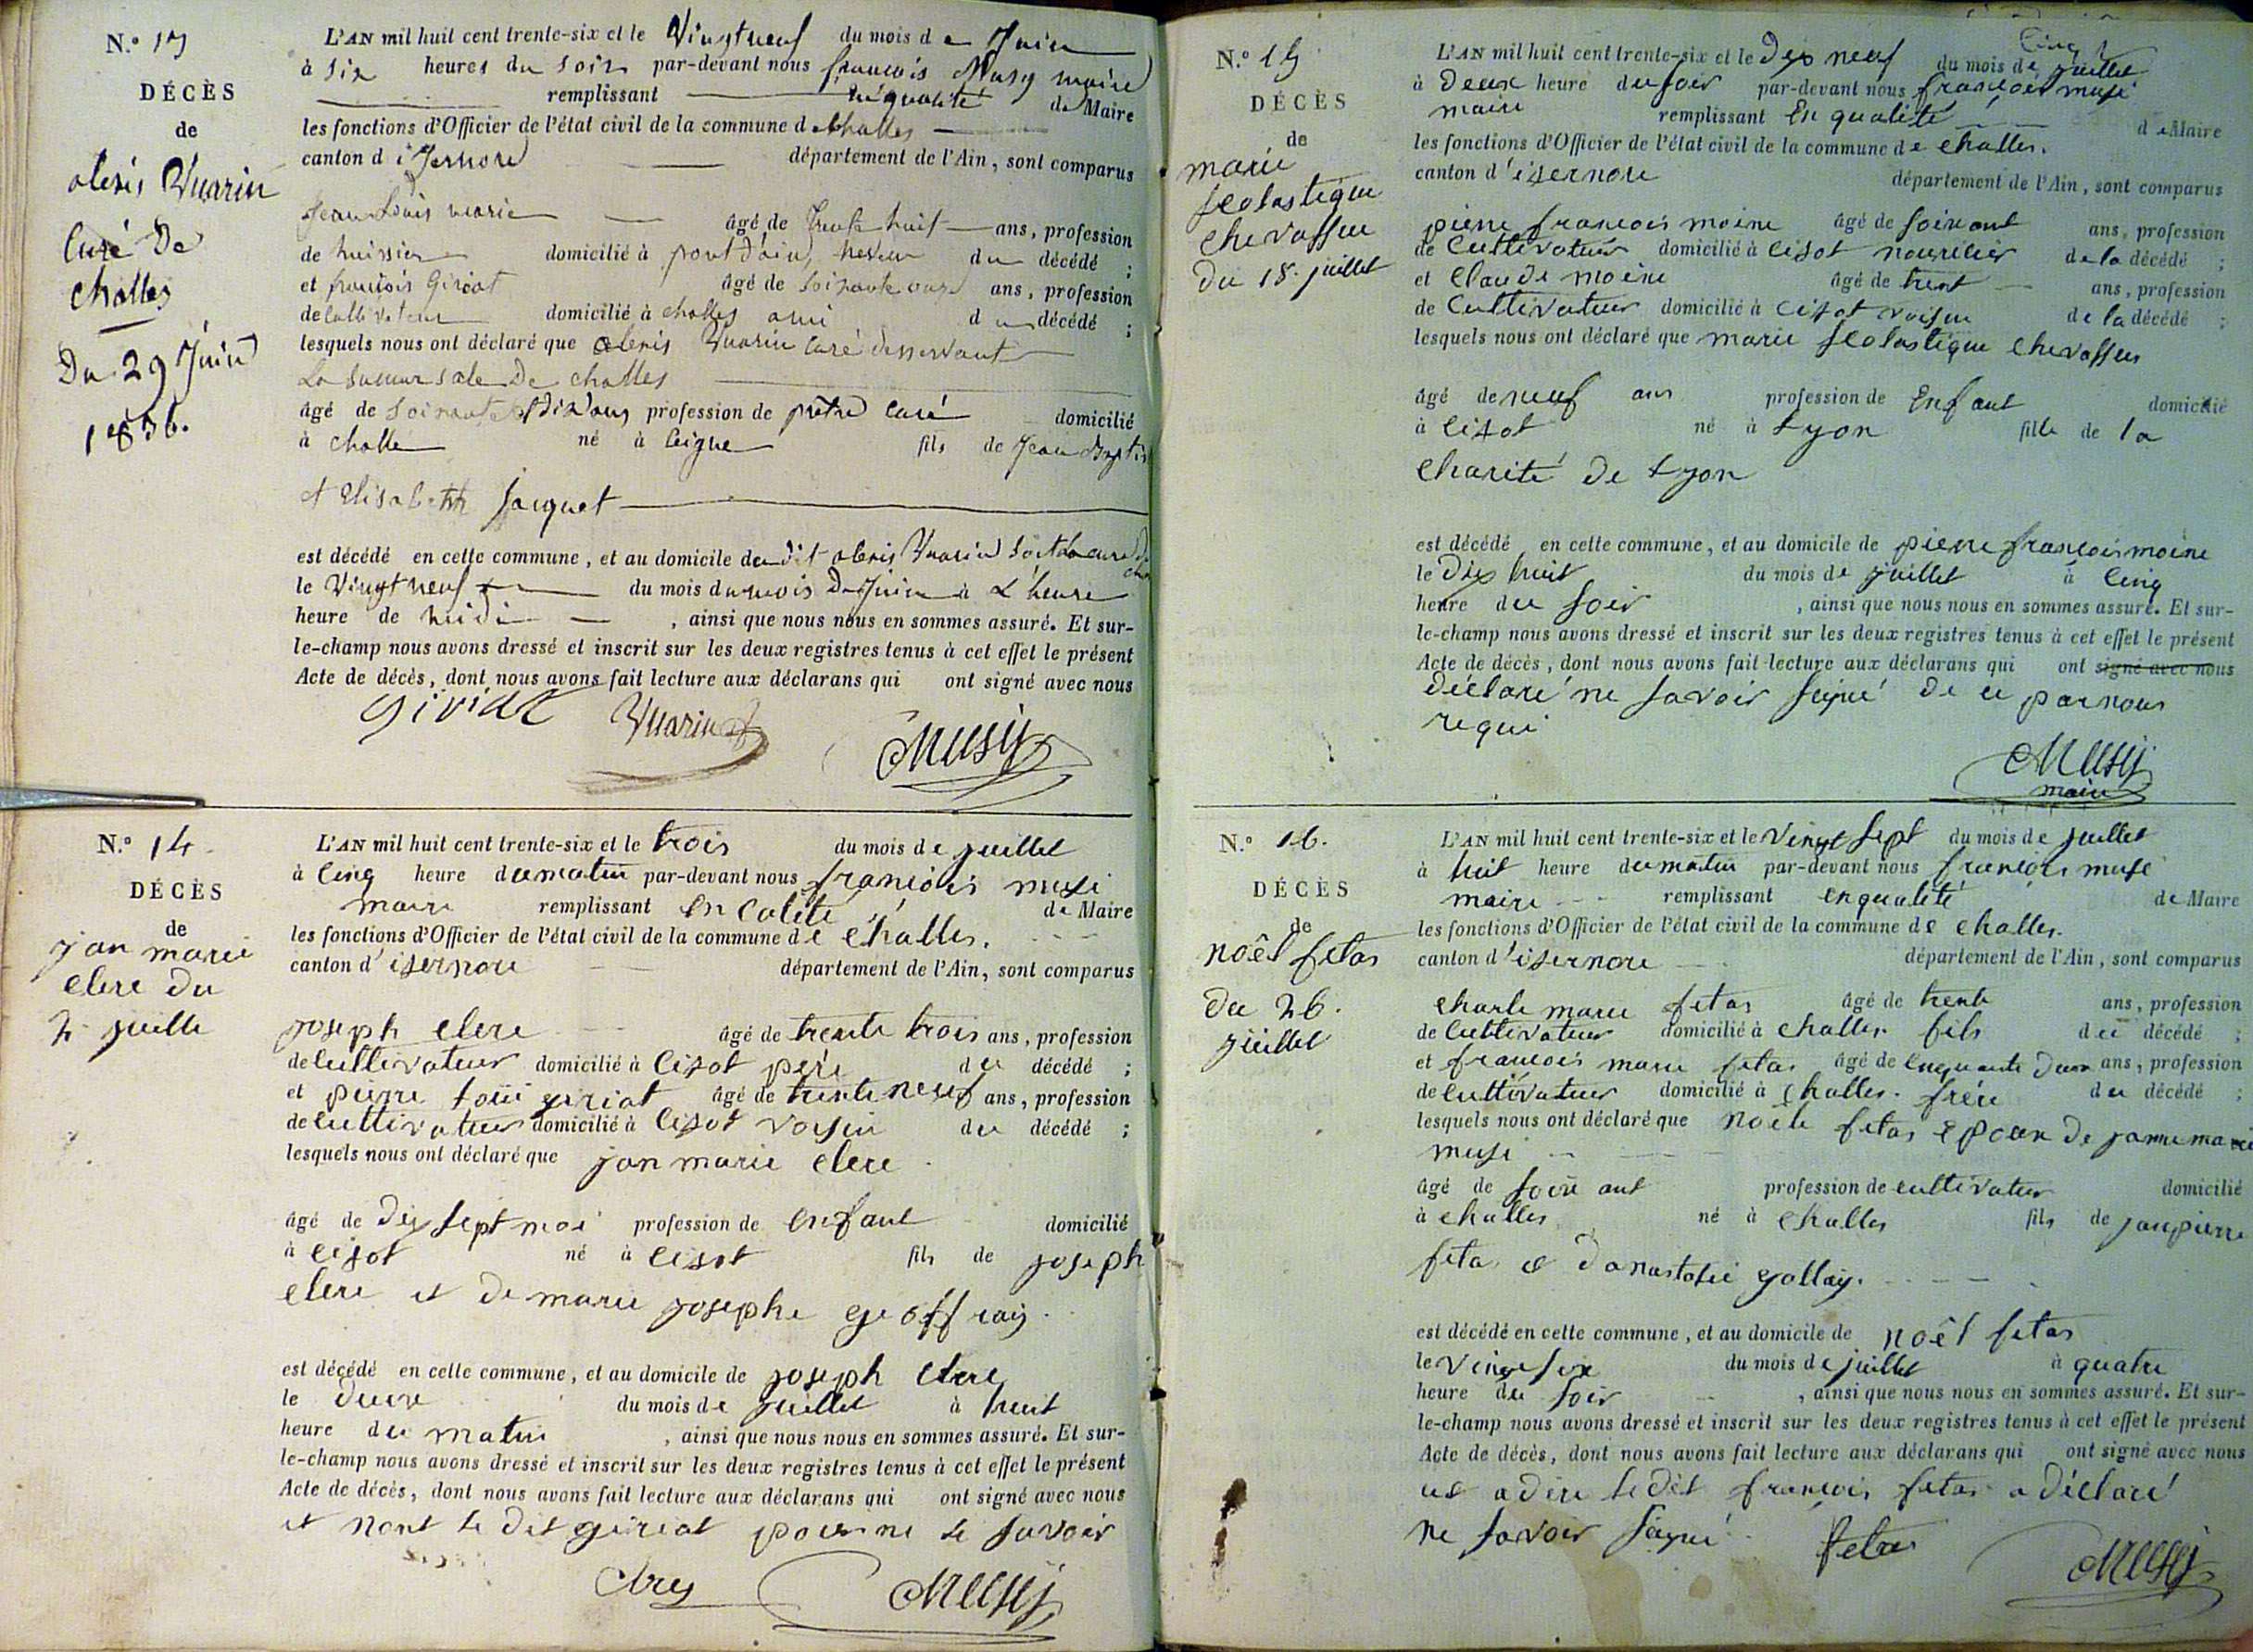 N.º 13
DÉCÈS
de
alexis Vuarin
Curé De
Challes
Du 29 Juin
1836.
L'AN mil huit cent trente-six et le Vingt neuf du mois de Juin
à six heures du soir par-devant nous françois Musy maire
remplissant en qualité de Maire
les fonctions d'Officier de l'état civil de la commune de Challes
canton d'isernore département de l'Ain, sont comparus
Jean Louis vuarin âgé de Trente huit ans, profession
de huissier domicilié à pont d'ain, neveu du décédé ;
et françois Giriat âgé de soixante onze ans, profession
de Cultivateur domicilié à challes ami du décédé ;
lesquels nous ont déclaré que alexis Vuarin Curé desservant
La succursale De challes
âgé de soixante et dix ans profession de prêtre curé domicilié
à challe né à leigne fils de Jean Baptiste
et Elisabeth Jacquet
est décédé en cette commune, et au domicile du dit alexis Vuarin
le Vingt neuf du mois du mois De Juin à L'heure
heure de midi , ainsi que nous nous en sommes assuré. Et sur-
le-champ nous avons dressé et inscrit sur les deux registres tenus à cet effet le présent
Acte de décès, dont nous avons fait lecture aux déclarans qui ont signé avec nous
Giriat Vuarin Musy
N.º 14
DÉCÈS
de
jan marie
clere du
2 juille
L'AN mil huit cent trente-six et le trois du mois de juillet
à Cinq heure du matin par-devant nous françois musi
maire remplissant en Calité de Maire
les fonctions d'Officier de l'état civil de la commune de challes.
canton d'isernore département de l'Ain, sont comparus
joseph clere âgé de trente trois ans, profession
de Cultivateur domicilié à Cisot père du décédé ;
et pierre Loüi giriat âgé de trente neuf ans, profession
de Cultivateur domicilié à Cisot voisin du décédé ;
lesquels nous ont déclaré que jan marie clere
âgé de Dix sept moi profession de Enfant domicilié
à Cisot né à Cisot fils de joseph
clere et De marie josephe geoffray.
est décédé en cette commune, et au domicile de joseph clere
le deux du mois de juillet à huit
heure du matin , ainsi que nous nous en sommes assuré. Et sur-
le-champ nous avons dressé et inscrit sur les deux registres tenus à cet effet le présent
Acte de décès, dont nous avons fait lecture aux déclarans qui ont signé avec nous
et nont le Dit giriat pour ne le savoir
Musy
N.º 15
DÉCÈS
de
marie
scolastique
chevassu
du 18 juillet
L'AN mil huit cent trente-six et le Dix neuf du mois de juillet
à Deux heure du soir par-devant nous françois musi
maire remplissant En qualité de Maire
les fonctions d'Officier de l'état civil de la commune de challes.
canton d'isernore département de l'Ain, sont comparus
pierre françois moine âgé de soixant ans, profession
de Cultivateur domicilié à Cisot nouricier de la décédé ;
et Claude moine âgé de trent ans, profession
de Cultivateur domicilié à Cisot voisin de la décédé ;
lesquels nous ont déclaré que marie scolastique chevassus
âgé de neuf ans profession de Enfant domicilié
à Cisot né à Lyon fille de la
charité de Lyon
est décédé en cette commune, et au domicile de pierre françois moine
le Dix huit du mois de juillet à Cinq
heure du soir , ainsi que nous nous en sommes assuré. Et sur-
le-champ nous avons dressé et inscrit sur les deux registres tenus à cet effet le présent
Acte de décès, dont nous avons fait lecture aux déclarans qui ont signé avec nous
déclaré ne savoir signé de ce par nous
requi
Musy
maire
N.º 16.
DÉCÈS
de
noël fetas
du 26.
juillet
L'AN mil huit cent trente-six et le Vingt sept du mois de juillet
à huit heure du matin par-devant nous françois musi
maire remplissant en qualité de Maire
les fonctions d'Officier de l'état civil de la commune de challes.
canton d'isernore département de l'Ain, sont comparus
charle marie fetas âgé de trente ans, profession
de Cultivateur domicilié à challes fils du décédé ;
et françois marie fetas âgé de Cinquante Deux ans, profession
de Cultivateur domicilié à Challes. frère du décédé ;
lesquels nous ont déclaré que noële fetas Epoux de janne marie
musi
âgé de soixant profession de cultivateur domicilié
à challes né à challes fils de jan pierre
fetas et Danastasie gollay.
est décédé en cette commune, et au domicile de noël fetas
le Vingt six du mois de juillet à quatre
heure du soir , ainsi que nous nous en sommes assuré. Et sur-
le-champ nous avons dressé et inscrit sur les deux registres tenus à cet effet le présent
Acte de décès, dont nous avons fait lecture aux déclarans qui ont signé avec nous
cet a dire ledit françois fetas a déclaré
ne savoir signé fetas Musy